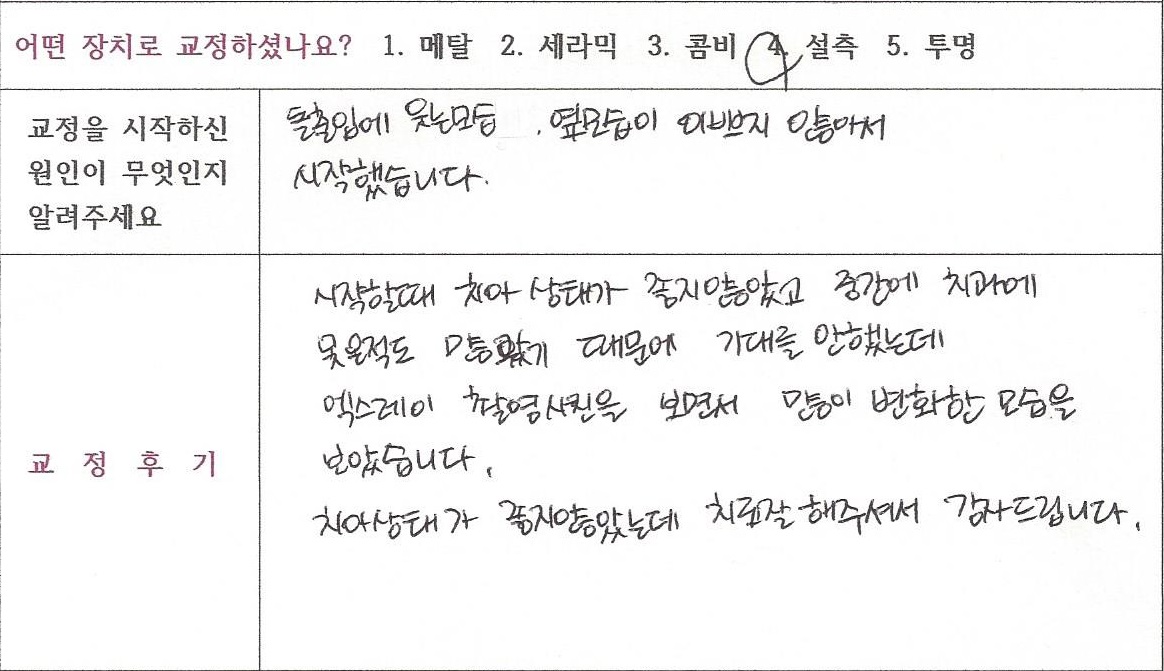 어떤 장치로 교정하셨나요? 1. 메탈 2. 세라믹 3. 콤비 4. 설측 5. 투명
교정을 시작하신
원인이 무엇인지
알려주세요
돌출입에 웃는모습, 옆모습이 이쁘지 않아서
시작했습니다.
교 정 후 기
시작할때 치아 상태가 좋지않았고 중간에 치과에
못온적도 많았기 때문에 기대를 안했는데
엑스레이 촬영사진을 보면서 많이 변화한 모습을
보았습니다.
치아상태가 좋지않았는데 치료잘해주셔서 감사드립니다.